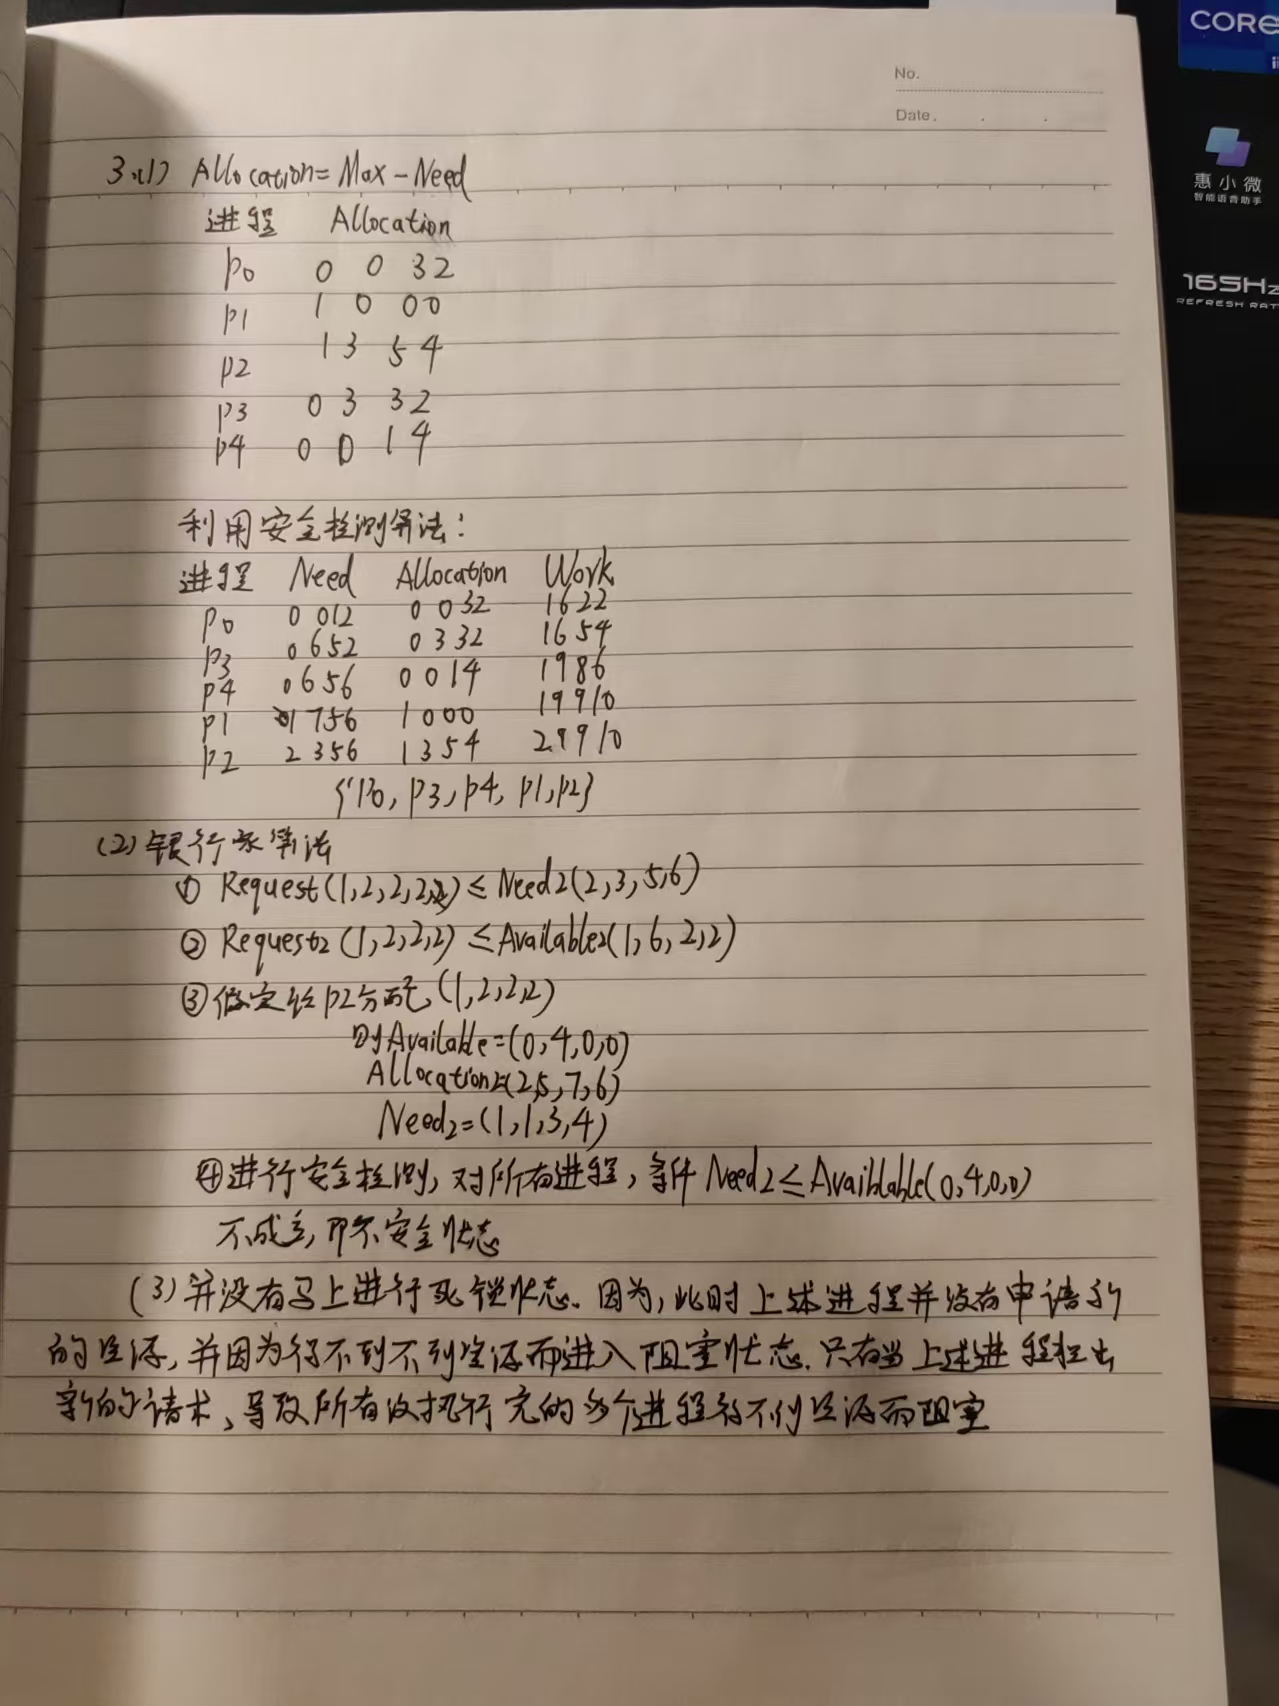 No.
Date.
CORE
惠小微
智能语音助手
165Hz
REFRESH RAT
3.(1) Allocation=Max-Need
进程 Allocation
P0 0 0 3 2
P1 1 0 0 0
P2 1 3 5 4
P3 0 3 3 2
P4 0 0 1 4
利用安全检测算法:
进程 Need Allocation Work
P0 0 0 1 2 0 0 3 2 1 6 2 2
P3 0 6 5 2 0 3 3 2 1 6 5 4
P4 0 6 5 6 0 0 1 4 1 9 8 6
P1 1 7 5 6 1 0 0 0 1 9 9 10
P2 2 3 5 6 1 3 5 4 2 9 9 10
{P0, P3, P4, P1, P2}
(2)银行家算法
① Request(1,2,2,2,2)≤Need2(2,3,5,6)
② Request2(1,2,2,2)≤Available2(1,6,2,2)
③假定给P2分配(1,2,2,2)
则Available=(0,4,0,0)
Allocation2=(2,5,7,6)
Need2=(1,1,3,4)
④进行安全检测,对所有进程,条件Need2≤Availblable(0,4,0,0)
不成立,即不安全状态
(3)并没有马上进行死锁状态.因为,此时上述进程并没有申请新
的资源,并因为得不到不到资源而进入阻塞状态.只有当上述进程提出
新的请求,导致所有没执行完的多个进程得不到资源而阻塞